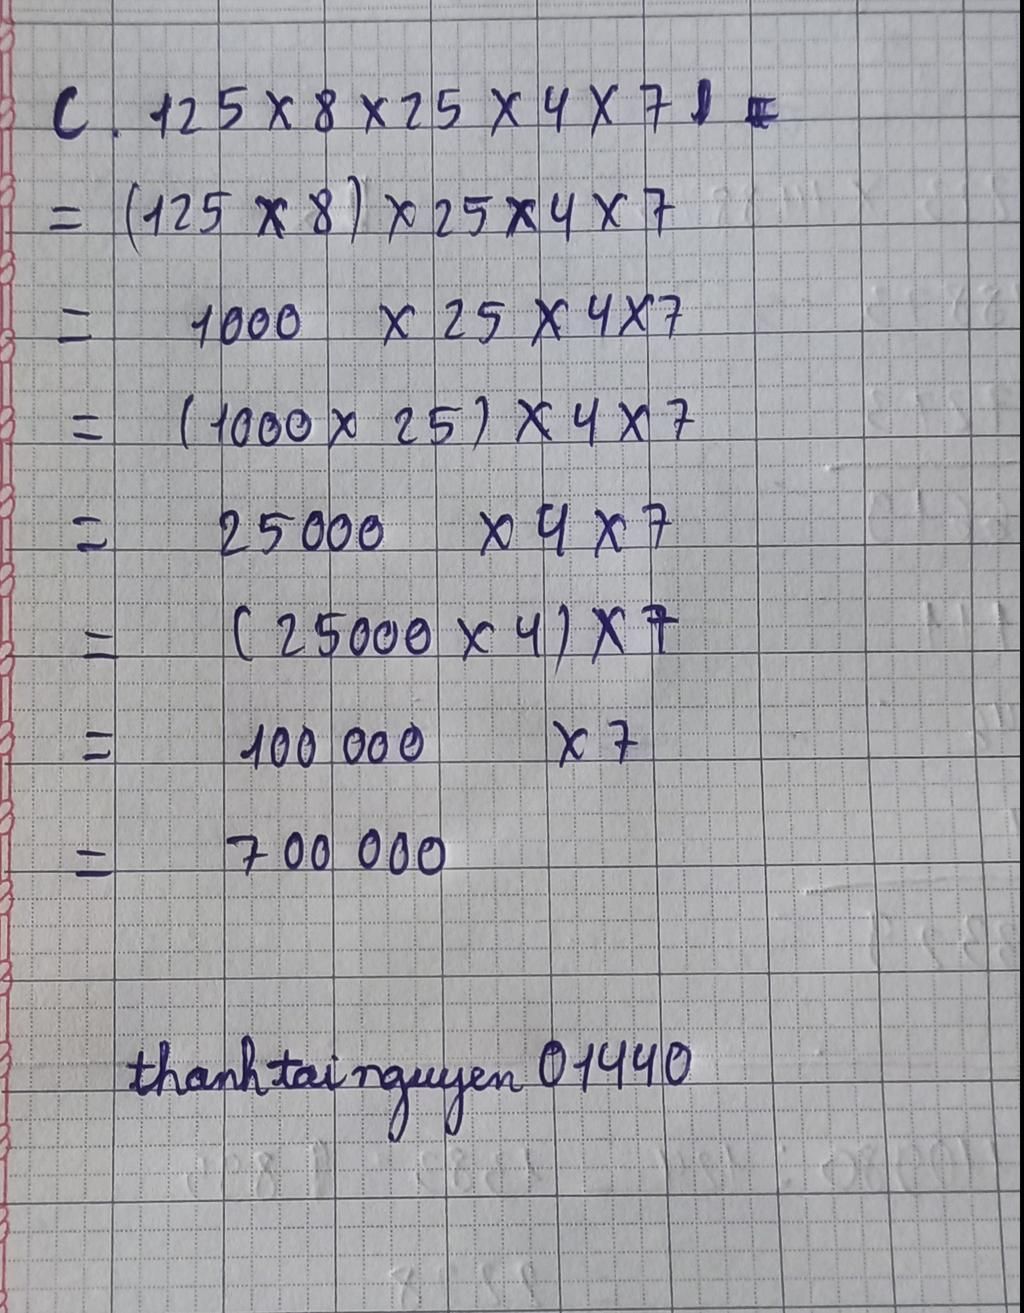 C. 125 x 8 x 25 x 4 x 7
= (125 x 8) x 25 x 4 x 7
= 1000 x 25 x 4 x 7
= (1000 x 25) x 4 x 7
= 25000 x 4 x 7
= (25000 x 4) x 7
= 100 000 x 7
= 700 000
thanhtainguyen 01440